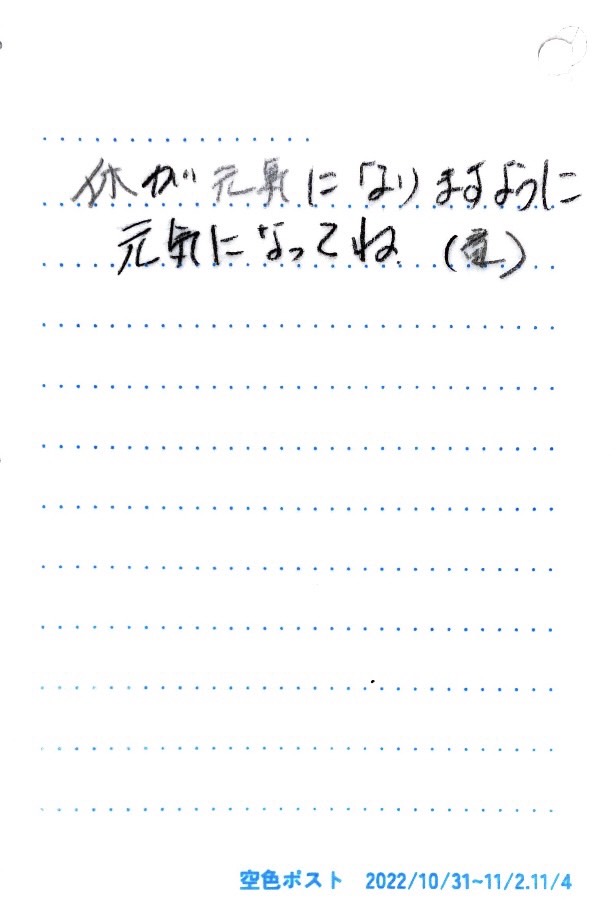 休が元気になりますように
元気になってね
空色ポスト 2022/10/31~11/2.11/4